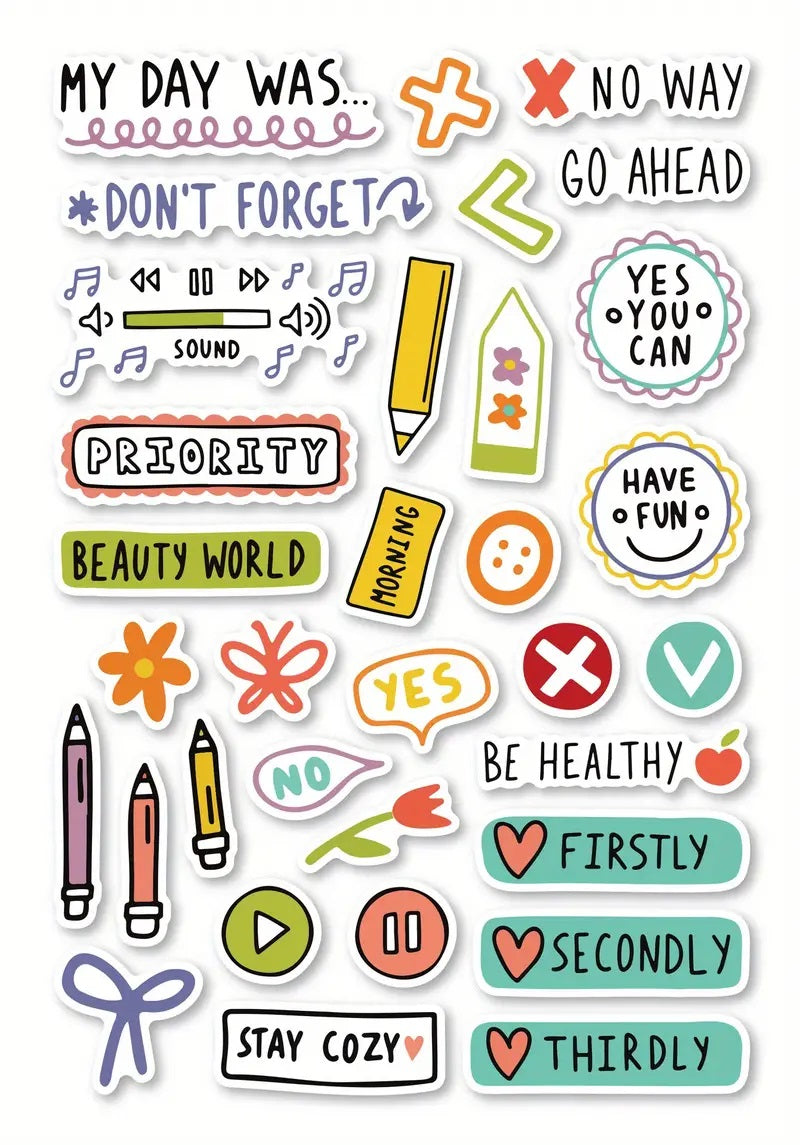 MY DAY WAS...
NO WAY
GO AHEAD
*DON'T FORGET
YES
YOU
CAN
SOUND
PRIORITY
HAVE
FUN
MORNING
BEAUTY WORLD
YES
NO
BE HEALTHY
FIRSTLY
SECONDLY
STAY COZY
THIRDLY